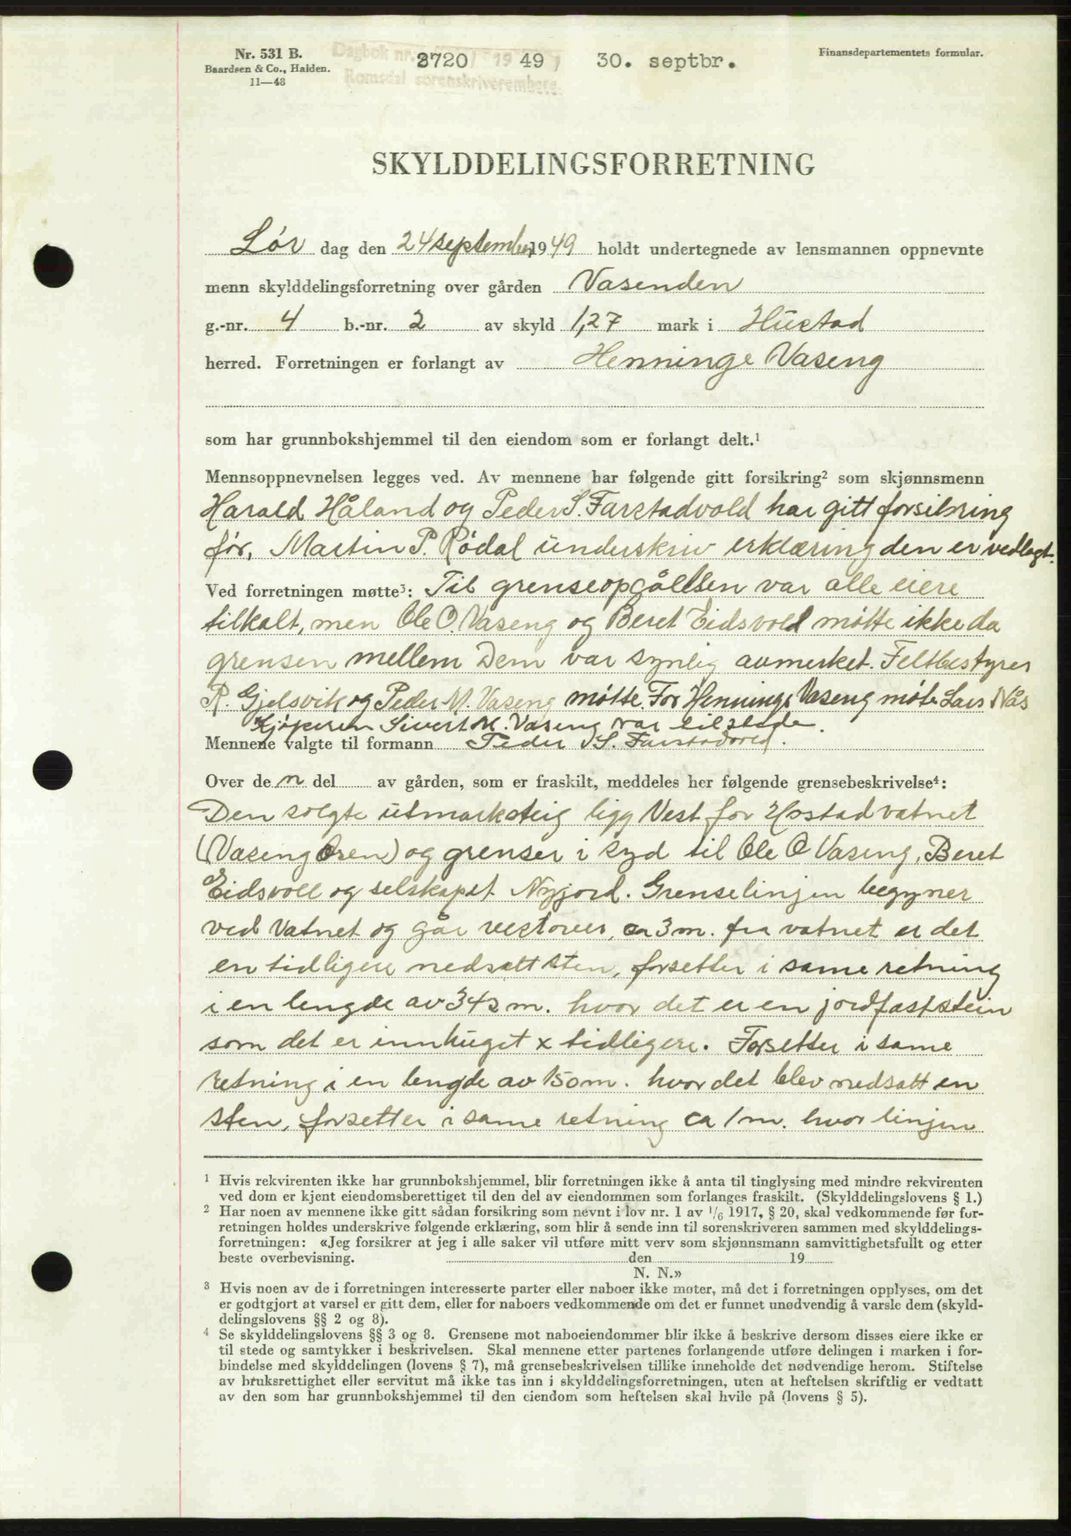 Nr. 531 B.
Baardsen & Co., Halden.
11—48
Dagbok nr. 3720 / 1949, 30. septbr.
Romsdal sorenskriverembete.
Finansdepartementets formular.
SKYLDDELINGSFORRETNING
Lør dag den 24 september 1949 holdt undertegnede av lensmannen oppnevnte
menn skylddelingsforretning over gården Vasenden
g.-nr. 4 b.-nr. 2 av skyld 1,27 mark i Hustad
herred. Forretningen er forlangt av Henninge Vaseng
som har grunnbokshjemmel til den eiendom som er forlangt delt.¹
Mennsoppnevnelsen legges ved. Av mennene har følgende gitt forsikring² som skjønnsmenn
Harald Håland og Peder S. Farstadvold har gitt forsikring
før, Martin P. Rødal underskriv erklæring den er vedlagt.
Ved forretningen møtte³: Til grenseopgållsen var alle eiere
tilkalt, men Ole O. Vaseng og Beret Eidsvold møtte ikke da
grensen mellem Dem var synlig avmerket. Feltbestyrer
R. Gjelsvik og Peder M. Vaseng møtte. For Henninge Vaseng møte Lars Nås
Kjøperen Sivert M. Vaseng var tilstede.
Mennene valgte til formann Peder S. Farstadvold.
Over de n del av gården, som er fraskilt, meddeles her følgende grensebeskrivelse⁴:
Den solgte utmarksteig ligg Vest for Hostadvatnet
(Vaseng Osen) og grenser i syd til Ole O Vaseng, Beret
Eidsvoll og selskapet Nyjord. Grenselinjen begyner
ved Vatnet og går vestover, ca 3 m. fra vatnet er det
en tidligere nedsatt sten, forsetter i same retning
i en lengde av 342 m. hvor det er en jordfast stein
som det er innhuget x tidligere. Forsetter i same
retning i en lengde av 150 m. hvor det blev nedsatt en
sten, forsetter i same retning ca 1 m. hvor linjen
¹ Hvis rekvirenten ikke har grunnbokshjemmel, blir forretningen ikke å anta til tinglysing med mindre rekvirenten
ved dom er kjent eiendomsberettiget til den del av eiendommen som forlanges fraskilt. (Skylddelingslovens § 1.)
² Har noen av mennene ikke gitt sådan forsikring som nevnt i lov nr. 1 av 1/6 1917, § 20, skal vedkommende før for-
retningen holdes underskrive følgende erklæring, som blir å sende inn til sorenskriveren sammen med skylddelings-
forretningen: «Jeg forsikrer at jeg i alle saker vil utføre mitt verv som skjønnsmann samvittighetsfullt og etter
beste overbevisning. den 19
N. N.»
³ Hvis noen av de i forretningen interesserte parter eller naboer ikke møter, må det i forretningen opplyses, om det
er godtgjort at varsel er gitt dem, eller for naboers vedkommende om det er funnet unødvendig å varsle dem (skyld-
delingslovens §§ 2 og 8).
⁴ Se skylddelingslovens §§ 3 og 8. Grensene mot naboeiendommer blir ikke å beskrive dersom disses eiere ikke er
til stede og samtykker i beskrivelsen. Skal mennene etter partenes forlangende utføre delingen i marken i for-
bindelse med skylddelingen (lovens § 7), må grensebeskrivelsen tillike inneholde det nødvendige herom. Stiftelse
av bruksrettighet eller servitut må ikke tas inn i skylddelingsforretningen, uten at heftelsen skriftlig er vedtatt
av den som har grunnbokshjemmel til den eiendom som heftelsen skal hvile på (lovens § 5).